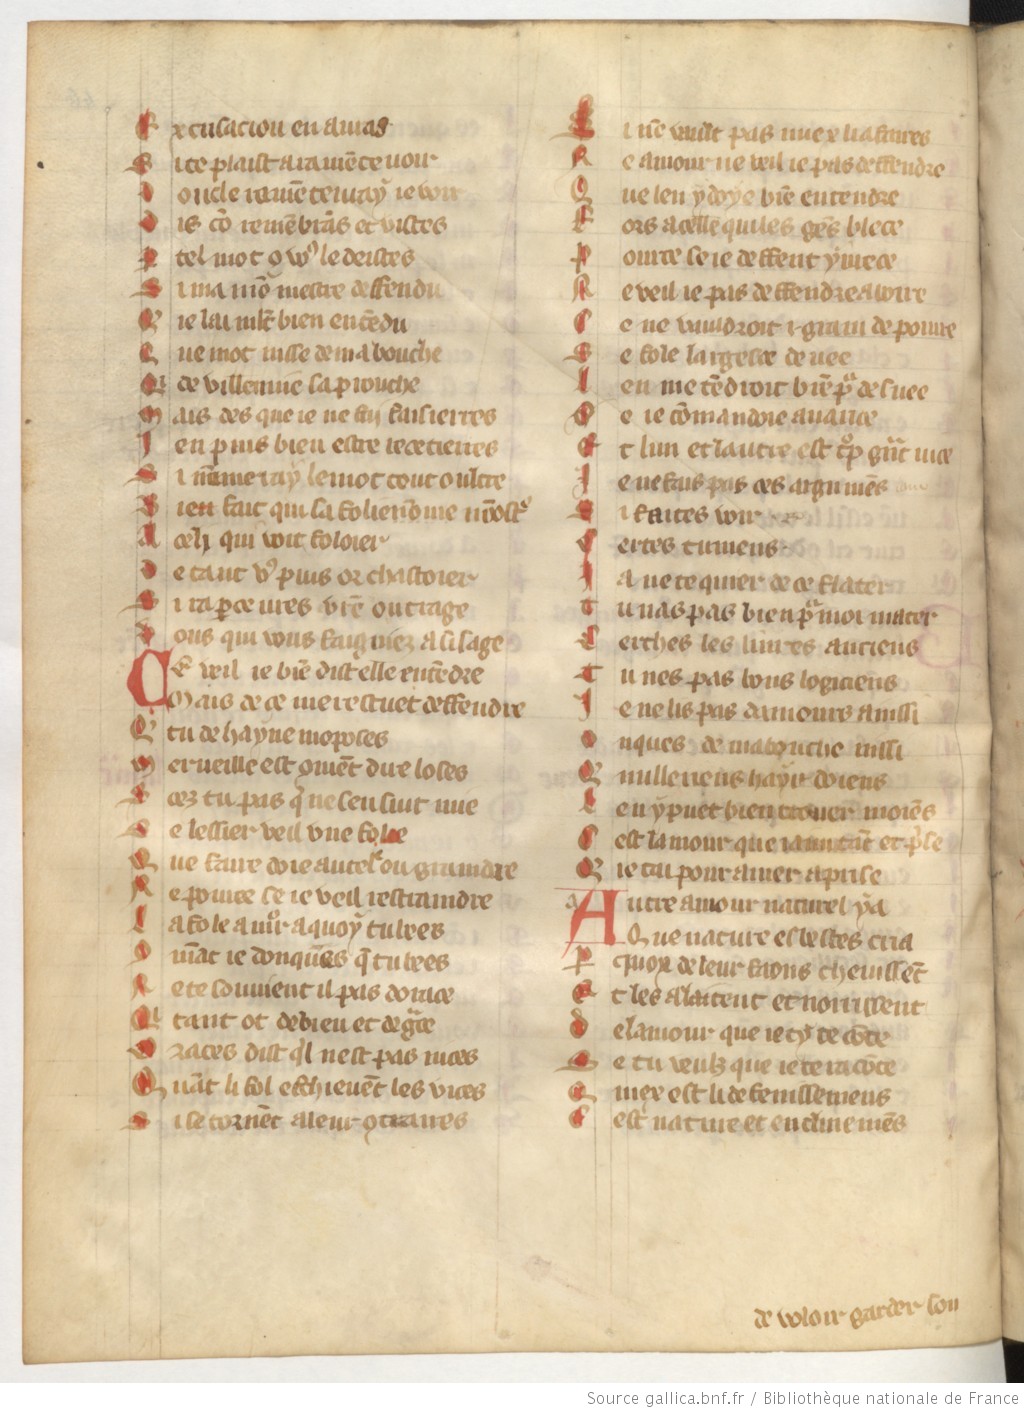 Excusacion en auras
Sice plaist aramentevoir
Donc le rementevray ie voir
Dis co remembrās et vistes
E tel mot qͥ vꝰ le deistes
Si ma mō mestre deffendu
Q ie lai mlt bien entēdu
Que mot nisse de ma bouche
De villennie saprouche
Mais des que ie ne suy faisierres
Ien puis bien estre recetierres
Si nūmeray le mot tout oultre
Bien fait qui sa folie
A celi qui voit foloier
De tant vꝰ puis or chastoier
Si aꝑceures vre outrage
Dous qui vous faigniez a si sage
Ce veil ie biē dist elle entēdre
Mais de ce me restuet deffendre
Q tu de hayne moposes
Merueille est qment dire loses
Scez tu pas q̄ ne sensuit mie
Se lessier veil vne folie
Que faire doie autel ou graindre
Ne pource se ie veil restraindre
La fole amor a quoy tu bees
Cōmāt ie donques q̄ tu bees
Ne te souuient il pas dorace
Qui tant ot de bien et de grace
Oraces dist qͥl nest pas nices
Quāt li fol eschieuēt les vices
Si se tornēt a leur qtraires
Si nē vault pas mieex li afaires
Ne amour ne veil ie pas deffendre
Que len y doye biē entendre
Fors a celle qui les gēs blece
Pource se ie deffent yurece
Ne veil ie pas deffendre a boire
Ce ne vaudroit i grain de poiure
Se fole largesce deuee
Len me tēdroit biē pͬ desuee
Se ie cōmandoie auarice
Et lun et lautre est tͦp grāt vice
Ie ne fais pas ces argumēs
Si faites voir
Certes tu mens
Ia ne te quier de ce flater
Tu nas pas bien pͬ moi mater
Cerches les liures anciens
Tu nes pas bons logiciens
Ie ne lis pas damours ainssi
Onques de ma bouche nissi
Q nulle riens hayr doiens
Len y puet bien trouer moiēs
Cest lamour que iaim tāt et pͥse
Q ie tai pour amer aprise
Autre amour naturel y a
Que nature es bestes cria
Par quoy de leur faons cheuissēt
Et les alaitent et norrissent
De lamour que ie cy te cōte
Se tu veulz que ie te racōte
Quiex est li defenissemens
Cest nature et enclinemēs
de voloir garder son
Source gallica.bnf.fr / Bibliothèque nationale de France